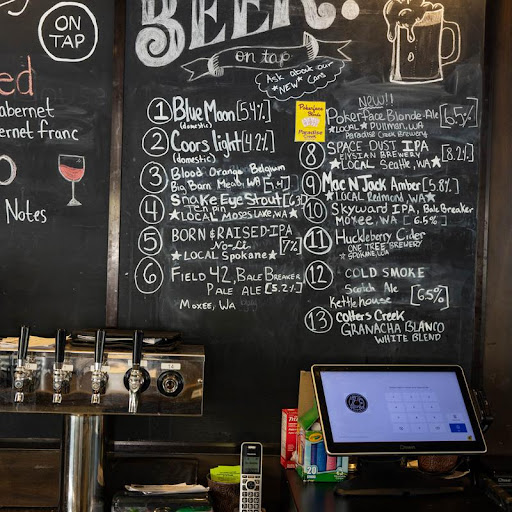 ON
TAP
ed
abernet
ernet franc
Notes
BEER!
on tap
Ask about our
*NEW* Cans
1 Blue Moon [5.4%]
(domestic)
2 Coors light [4.2%]
(domestic)
3 Blood Orange Belgium
Big Barn Mead, WA
4 Snake Eye Stout
★LOCAL Moses Lake, WA★
5 BORN & RAISED-IPA
No-Li [7%]
★LOCAL Spokane★
6 FIELD 42, BALE BREAKER
PALE ALE [5.2%]
MOXEE, WA
Pokerface
Blonde
Paradise
Creek
New!!
Pokerface Blonde-Ale [6.5%]
★LOCAL★ PULLMAN, WA
Paradise Creek Brewery
8 SPACE DUST IPA
ELYSIAN BREWERY [8.2%]
★LOCAL Seattle, WA★
9 Mac N Jack Amber [5.8%]
★LOCAL Redmond, WA★
10 SKYWARD IPA, Bale Breaker
MOXEE, WA [6.5%]
11 Huckleberry Cider
ONE TREE BREWERY
★SPOKANE, WA
12 COLD SMOKE
Scotch Ale
Kettlehouse [6.5%]
13 Colters Creek
GRANACHA BLANCO
WHITE BLEND